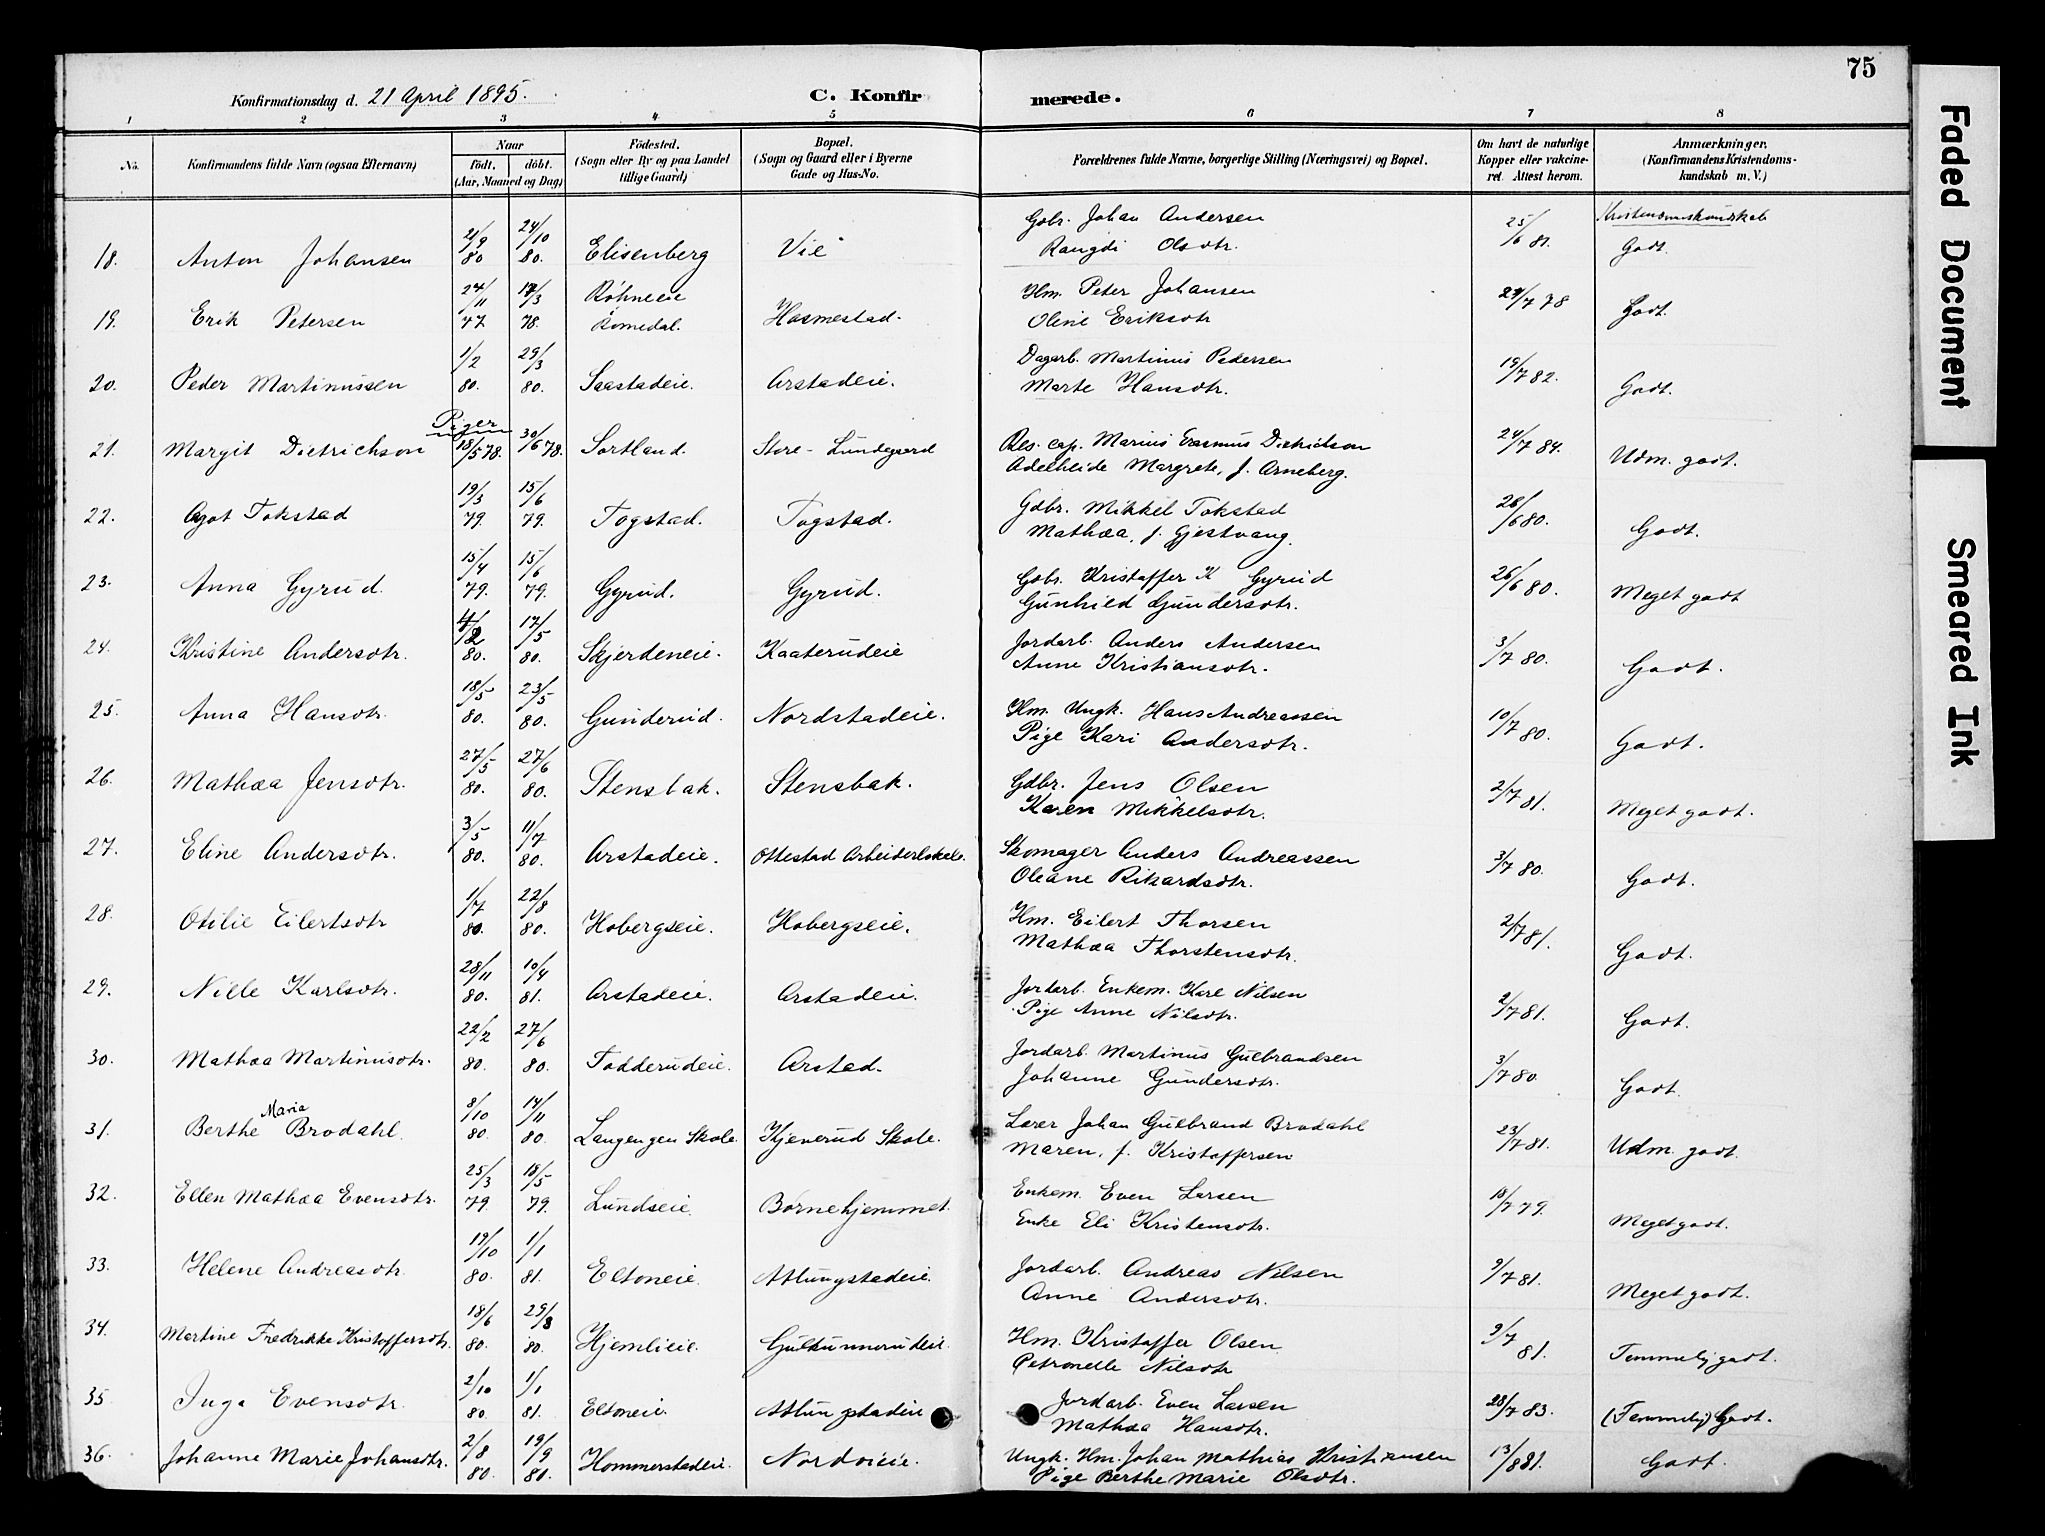 75
Konfirmationsdag d. 21 April 1895.
C. Konfirmerede.
1 2 3 4 5 6 7 8
No. Konfirmandens fulde Navn (ogsaa Efternavn) Naar födt. döbt. (Aar, Maaned og Dag) Födested. (Sogn eller By og paa Landet tillige Gaard) Bopæl. (Sogn og Gaard eller i Byerne Gade og Hus-No. Forældrenes fulde Navne, borgerlige Stilling (Næringsvei) og Bopæl. Om havt de naturlige Kopper eller vakcineret. Attest herom. Anmærkninger. (Konfirmandens Kristendomskundskab m. V.)
Kristendomskundskab
18. Anton Johansen 21/9 80 24/10 80. Elisenberg Vie Gbr. Johan Andersen Rangdi Olsdtr. 25/6 81. Godt.
19. Erik Petersen 24/11 77 17/3 78. Röhneeie Romedal. Hosmestad. Hm. Peter Johansen Oline Eriksdtr 27/7 78 Godt.
20. Peder Martinussen 1/2 80. 29/3 80. Saastadeie. Arstadeie. Dagarb. Martinus Pedersen Marte Hansdtr. 19/7 82. Godt.
Piger
21. Margit Dietrichson 18/5 78. 30/6 78. Sortland. Store-Lundgaard Res. cap. Marius Erasmus Dietrichson Adelheide Margrete, f. Arneberg. 24/7 84. Udm. godt.
22. Agot Tokstad 19/3 79. 15/6 79. Togstad. Togstad. Gdbr. Mikkel Tokstad Mathæa, f. Gjestvang. 26/6 80. Godt.
23. Anna Gyrud. 15/4 79. 15/6 79. Gyrud. Gyrud. Gbr. Kristoffer K Gyrud Gunhild Gundersdtr. 26/6 80. Meget godt
24. Kristine Andersdtr. 4/2 80. 17/5 80. Skjerdeneie. Kaaterudeie Jordarb. Anders Andersen Anne Kristiansdtr. 3/7 80. Godt.
25. Anna Hansdtr. 18/5 80. 23/5 80. Gunderud. Nordstadeie. Hm. Ungk. Hans Andreassen Pige Kari Andersdtr. 10/7 80. Godt.
26. Mathæa Jensdtr. 27/5 80. 27/6 80. Stensbak. Stensbak. Gdbr. Jens Olsen Karen Mikkelsdtr. 2/7 81. Meget godt.
27. Eline Andersdtr. 3/5 80. 11/7 80. Arstadeie. Ottestad Arbeiderlokale. Skomager Anders Andreassen Oleane Rikardsdtr. 3/7 80. Godt.
28. Otilie Eilertsdtr 1/7 80. 22/8 80. Hobergseie. Hobergseie. Hm. Eilert Thorsen Mathæa Thorstensdtr. 2/7 81. Godt.
29. Nille Karlsdtr. 28/11 80. 10/4 81. Arstadeie. Arstadeie. Jordarb. Enkem. Karl Nilsen Pige Anne Nilsdtr. 2/7 81. Godt.
30. Mathæa Martinusdtr. 22/2 80. 27/6 80. Fodderudeie. Arstad. Jordarb. Martinus Gulbrandsen Johanne Gundersdtr. 3/7 80. Godt.
31. Berthe Maria Brodahl. 8/10 80. 14/11 80. Langengen Skole. Kjenerud Skole. Lærer Johan Gulbrand Brodahl Maren, f. Kristoffersen 23/7 81. Udm. godt.
32. Ellen Mathæa Evensdtr. 25/3 79. 18/5 79. Lundseie. Børnehjemmet. Enkem. Even Larsen Enke Eli Kristensdtr. 18/7 79. Meget godt.
33. Helene Andreasdtr. 19/10 80. 1/1 81. Eltoneie. Atlungstadeie. Jordarb. Andreas Nilsen Anne Andersdtr. 9/7 81. Meget godt.
34. Martine Fredrikke Kristoffersdtr. 18/6 80. 29/8 80. Hjemlieie. Hm. Kristoffer Olsen Petronelle Nilsdtr 9/7 81. Temmelig godt.
35. Inga Evensdtr. 2/10 80. 1/1 81. Eltoneie. Atlungstadeie Jordarb. Even Larsen Mathæa Hansdtr. 28/7 83. (Temmelig) Godt.
36. Johanne Marie Johansdtr. 2/8 80. 19/9 80. Hommerstadeie. Nordvieie. Ungk. Hm. Johan Mathias Kristiansen Pige Berthe Marie Olsdtr. 13/8 81. Godt.
Faded Document
Smeared Ink